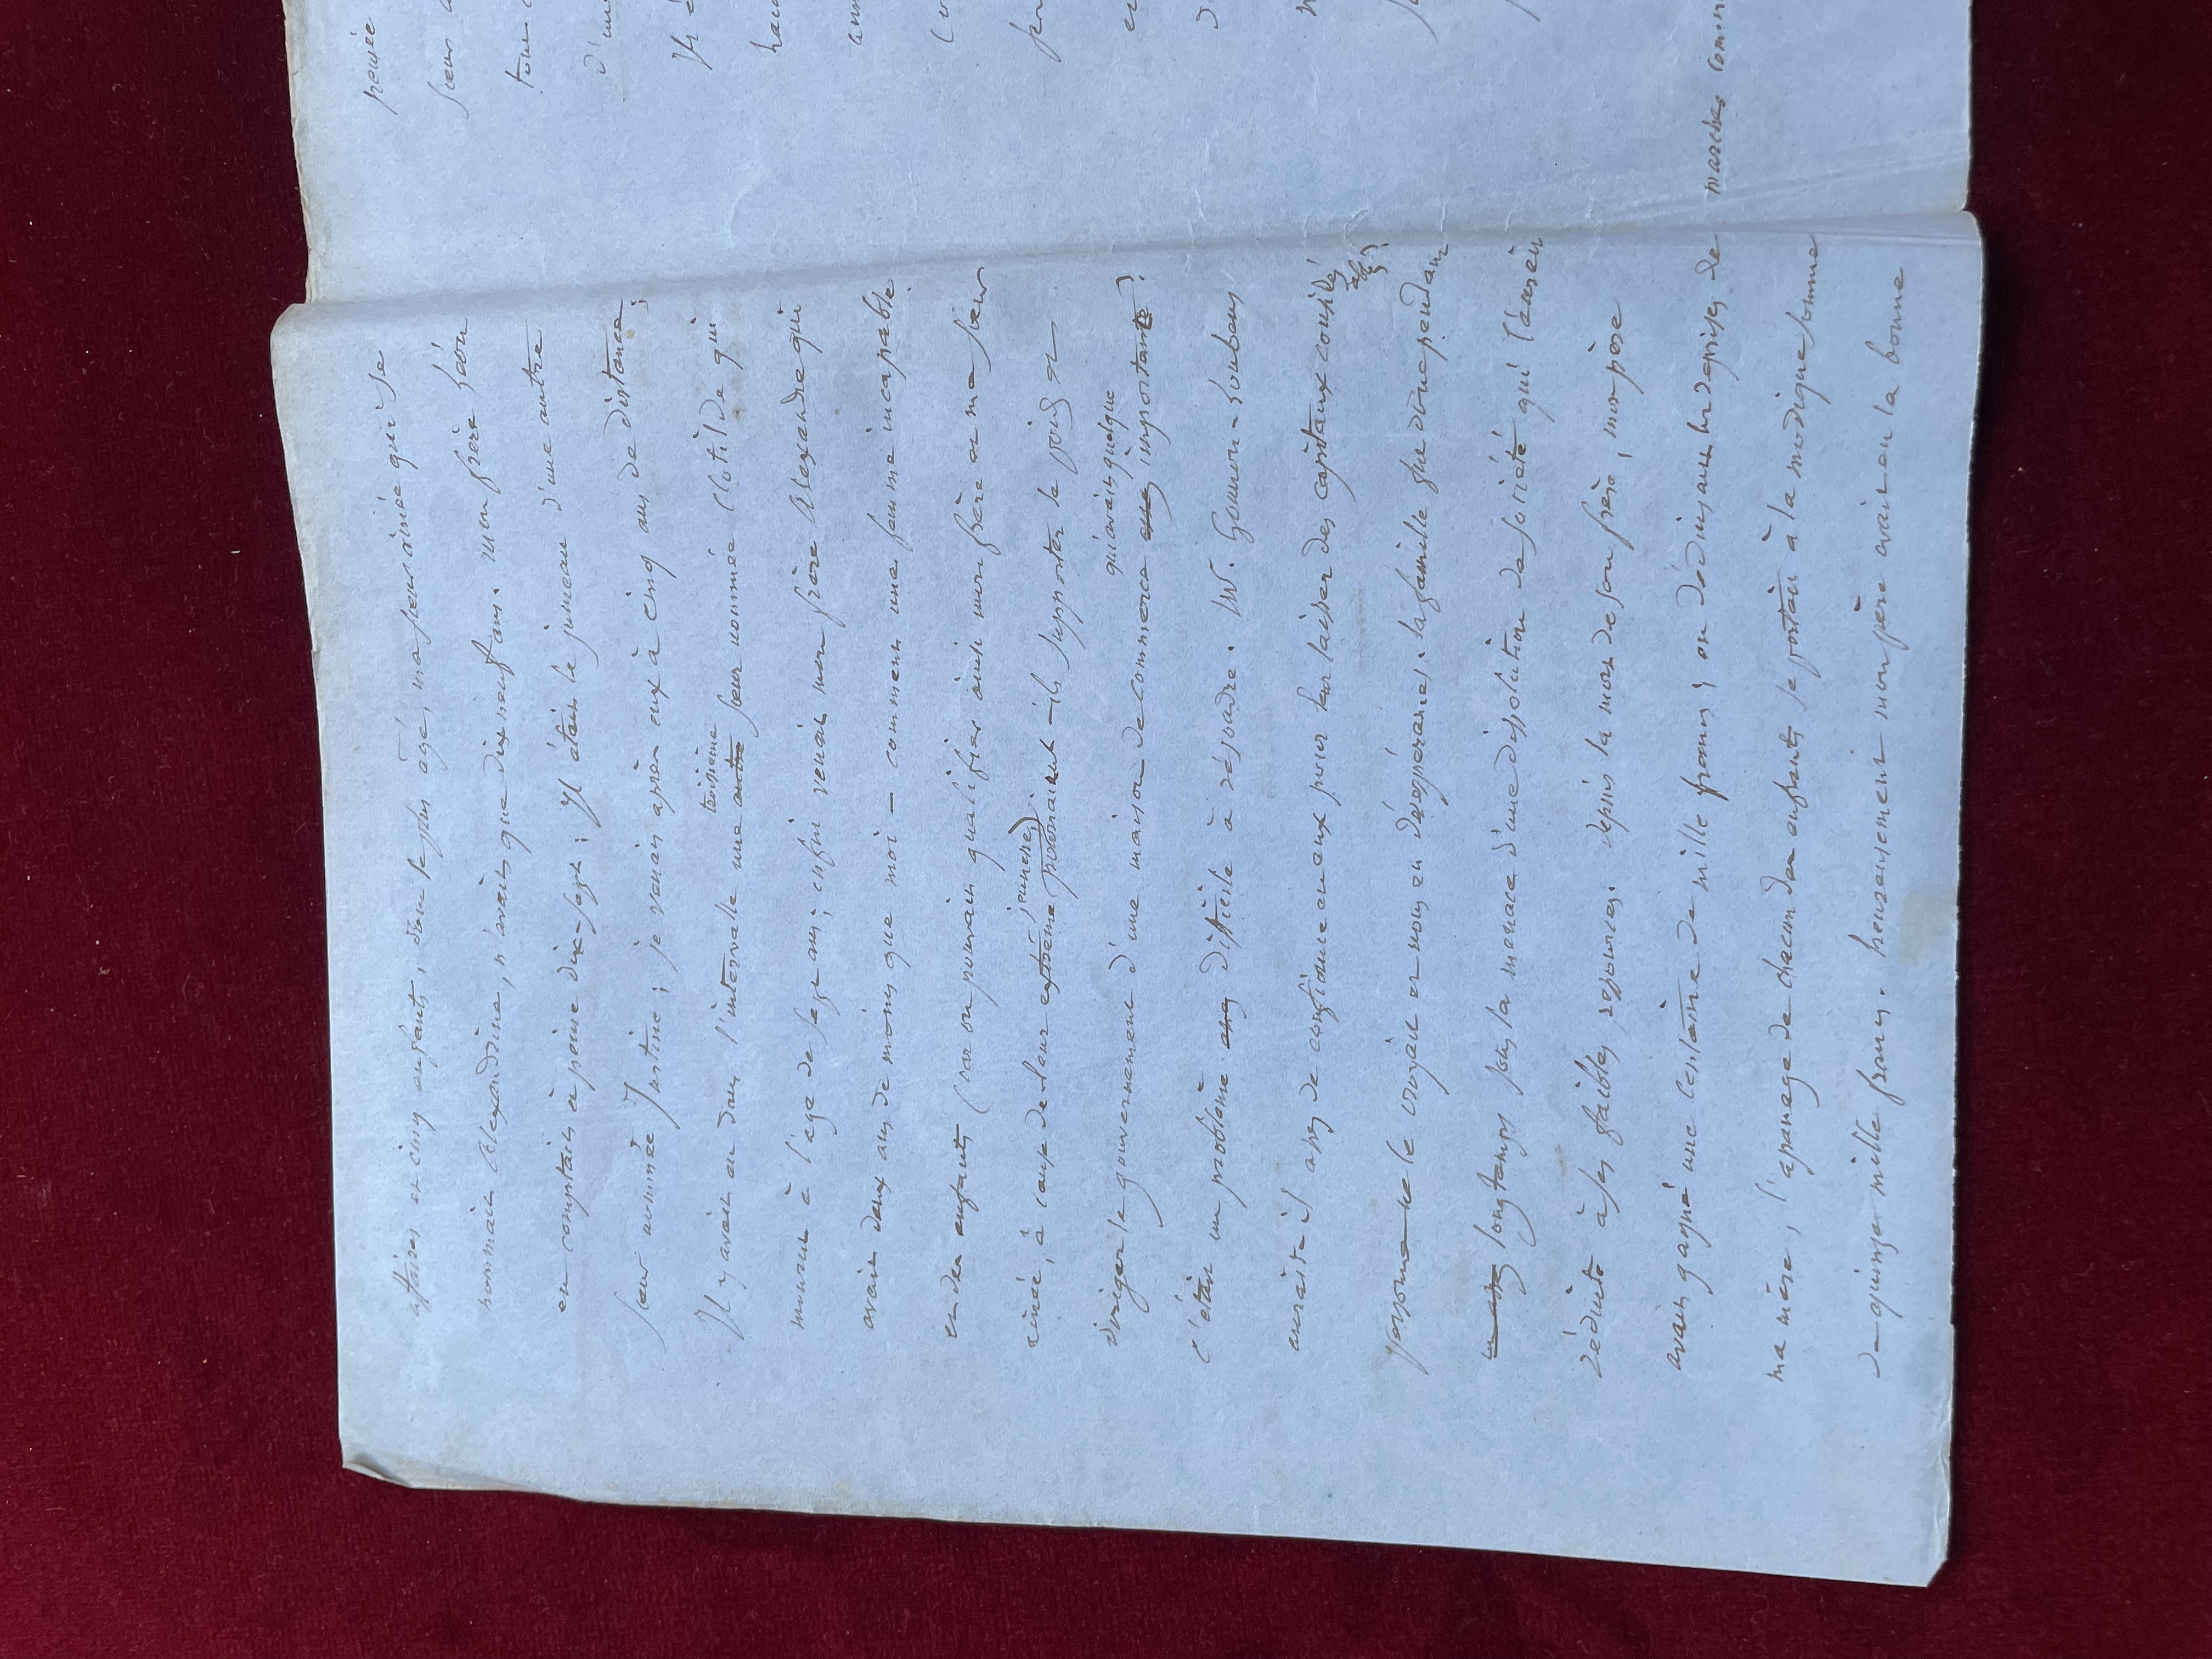 affaires et cinq enfants, dont le plus âgé, ma sœur ainée qui se
nommait Alexandrine, n'avait que dix neuf ans. mon frère Léon
en comptait à peine dix-sept ; Il était le jumeau d'une autre
sœur nommée Justine ; je venais après eux à cinq ans de distance ;
troisième
Il y avait eu dans l'intervalle une autre sœur nommée Clotilde qui
mourut à l'age de sept ans ; enfin venait mon frère Alexandre qui
avait deux ans de moins que moi — comment une femme incapable
et des enfants (car on pouvait qualifier ainsi mon frère et ma sœur
jeunesse)
ainée, à cause de leur extrême pourraient-ils supporter le poids et
qui avait quelque
diriger le gouvernement d'une maison de commerce importante ?
c'était un problème difficile à résoudre. M.
aurait-il assez de confiance en eux pour leur laisser des capitaux considé
rables ?
personne ne le croyait et nous en désespérions. la famille fut donc pendant
longtemps sous la menace d'une dissolution de société qui l'aurait
réduite à ses faibles ressources. depuis la mort de son frère, mon père
avait gagné une centaine de mille francs ; en déduisant les reprises de
ma mère, l'apanage de chacun des enfants se portait à la modique somme
de quinze mille francs. heureusement mon père avait eu la bonne
pensée
sœur
tour
d'un
marches comm